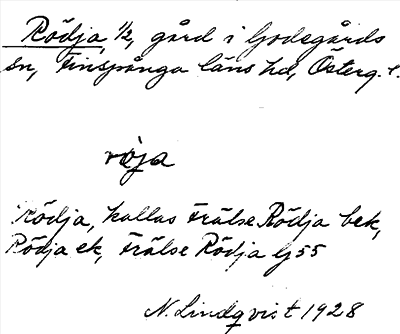 Rödja, 1/2, gård i Godegårds
sn, Finspånga läns hd, Österg. l.
röja
Rödja, kallas Frälse Rödja bek,
Rödja ek, Frälse Rödja lj 55
N. Lindqvist 1928